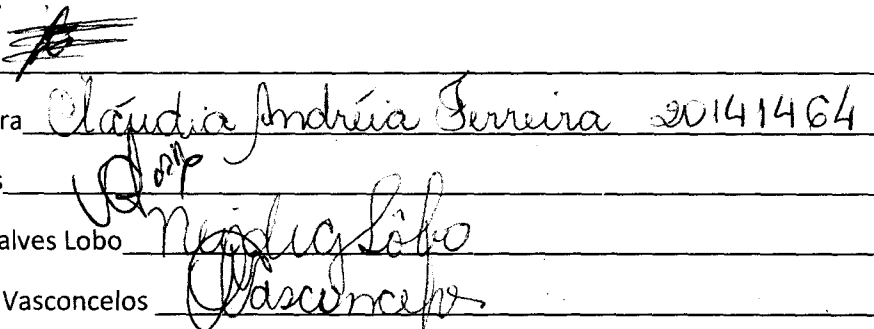 ra Cláudia Andréia Ferreira 20141464
s
alves Lobo Neidig Lôbo
Vasconcelos Vasconcelos